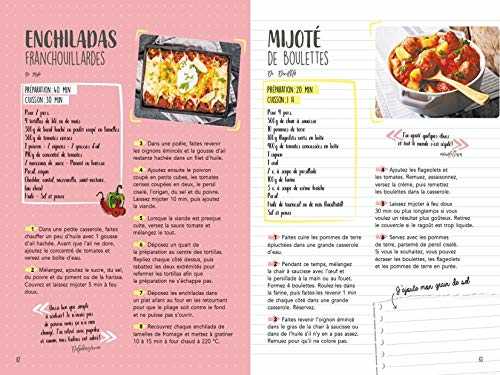 ENCHILADAS
FRANCHOUILLARDES
PRÉPARATION 40 MIN
CUISSON 30 MIN
Pour 2 pers.
4 tortillas de blé ou de maïs
300g de bœuf haché ou poulet coupé en lamelles
500g de tomates cerises
1 poivron - 2 oignons - 2 gousses d'ail
140g de concentré de tomates
2 morceaux de sucre - Piment ou harissa
Persil, origan
Cheddar, cantal, mozzarella, saint-nectaire,
(au choix)
Huile - Sel et poivre
1 Dans une petite casserole, faites
chauffer un peu d'huile avec 1 gousse
d'ail hachée. Avant que l'ail ne dore,
ajoutez le concentré de tomates et
versez une boîte d'eau.
2 Mélangez, ajoutez le sucre, du sel,
du poivre et du piment ou de la harissa.
Couvrez et laissez mijoter 5 min à feu
doux.
3 Dans une poêle, faites revenir
les oignons émincés et la gousse d'ail
restante hachée dans un filet d'huile.
4 Ajoutez ensuite le poivron
coupé en petits cubes, les tomates
cerises coupées en deux, le persil
ciselé, l'origan, du sel et du poivre.
Laissez mijoter 10 min, puis ajoutez
la viande.
5 Lorsque la viande est presque
cuite, versez la sauce tomate et
mélangez le tout.
6 Déposez un quart de
la préparation au centre des tortillas.
Repliez chaque côté dessus, puis
rabattez les deux extrémités pour
refermer les tortillas afin que
la préparation ne s'échappe pas.
7 Déposez les enchiladas dans
un plat allant au four en les retournant
pour que le pliage soit contre le fond
et ne puisse pas s'ouvrir.
8 Recouvrez chaque enchilada
de lamelles de fromage et mettez à gratiner
10 à 15 min à four chaud à 220 °C.
MIJOTÉ
DE BOULETTES
PRÉPARATION 20 MIN
CUISSON 1 H
Pour 4 pers.
500g de chair à saucisse
10 pommes de terre
400g de flageolets verts en boîte
400g de tomates concassées en boîte
1 oignon
1 œuf
2 c. à soupe de persillade
100g de farine
5 c. à soupe de crème
Persil
Huile de tournesol ou de noix
Sel et poivre
1 Faites cuire les pommes de terre
épluchées dans une grande casserole
d'eau.
2 Pendant ce temps, mélangez
la chair à saucisse avec l'œuf et
la persillade à la main ou au robot.
Formez 4 boulettes. Roulez-les
dans la farine, puis faites-les revenir 1 min
de chaque côté dans une grande
casserole. Réservez.
3 Faites revenir l'oignon émincé
dans le gras de la chair à saucisse ou dans
de l'huile s'il n'y en a pas assez.
4 Ajoutez les flageolets et
les tomates. Remuez, assaisonnez,
versez la crème, puis remettez
les boulettes dans la casserole.
5 Laissez mijoter à feu doux
30 min ou plus longtemps si vous
voulez un résultat plus goûteux. Retirez
le couvercle si le ragoût est trop liquide.
6 Servez avec les pommes
de terre, parsemé de persil ciselé.
Si vous le souhaitez, vous pouvez
écraser les boulettes, les flageolets
et les pommes de terre en purée.
J'ajoute mon grain de sel